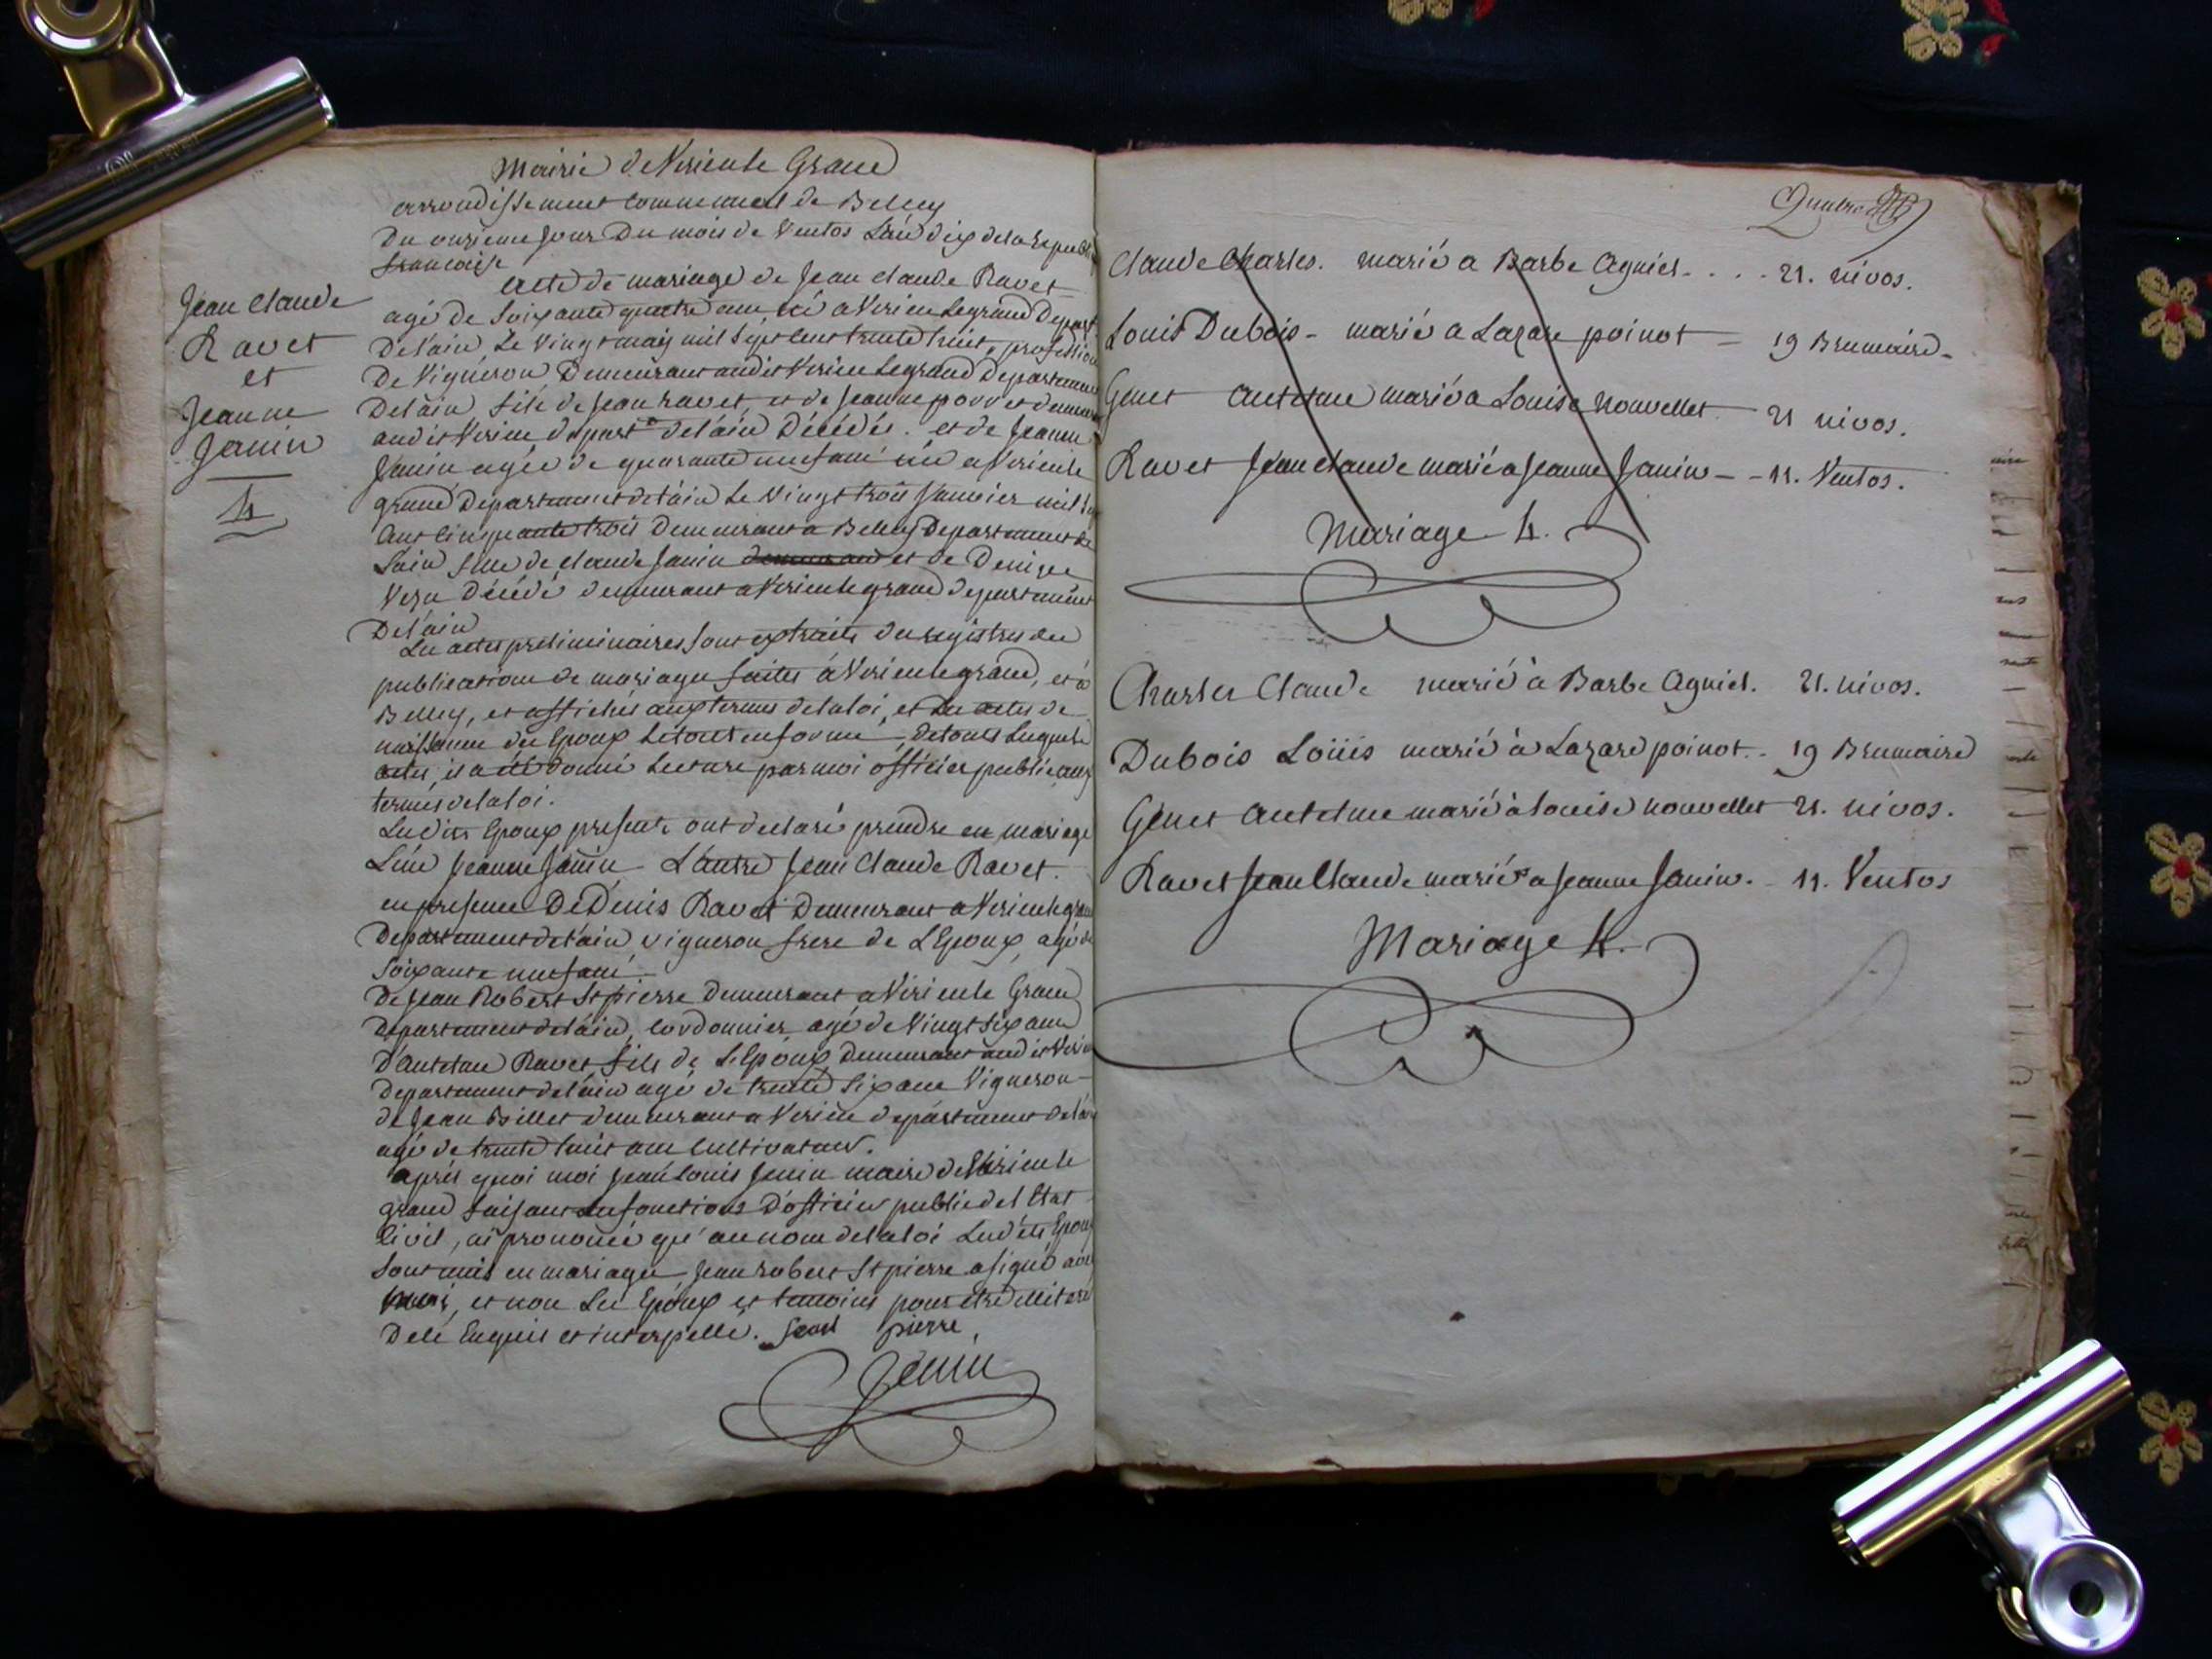 Mairie de Virieu le Grand
arrondissement communal de Belley
Du onzieme jour Du mois de Ventos L'an dix de la republi
francaise
acte de mariage de Jean Claude Ravet
agé de Soixante quatre ans né a Virieu Legrand Depart
Delain, Le Vingt may mil sept cent trente huit, profession
De Vigneron Demeurant audit Virieu Legrand Departemen
Delain, fils de Jean ravet, et de Jeanne demeur
audit Virieu depart.t delain Décédés. et de Jeanne
Janin agée de quarante neuf ans née a Virieu le
grand Departement delain le Vingt trois Janvier mil sep
Cent Cinquante trois Demeurant a Belley Departement de
Lain fille de Claude Janin et de Denise
décédé demeurant a Virieu le grand departement
Delain
Les actes preliminaires sont extraits des registres des
publications de mariages faites à Virieu le grand, et à
Belley, et affichés aux termes de la loi, et Les actes de
naissance des Epoux le tout en forme, de tous Lesquels
actes, il a été donné lecture par moi officier public aux
termes de la loi.
Lesdits Epoux presents ont declaré prendre en mariage
L'un Jeanne Janin L'autre Jean Claude Ravet.
en presence De Denis Ravet Demeurant a Virieu le gran
Departement delain, vigneron, frere de L'Epoux, agé de
Soixante neuf ans
de Jean Robert St pierre Demeurant a Virieu le Grand
Departement delain, cordonnier agé de Vingt six ans
D'antelme Ravet, fils de L'Epoux, Demeurant audit Virieu
departement delain agé de trente six ans Vigneron
de Jean Billet demeurant a Virieu departement delain
agé de trente huit ans Cultivateur.
après quoi moi Jean Louis Jenin maire de Virieu le
grand faisant les fonctions D'officier public del Etat
Civil, ai prononcé qu'au nom de la loi Lesdits Epoux
sont unis en mariage, Jean robert St pierre a signé avec
moi, et non Les Epoux et temoins pour etre illiteré
De le Enquis et interpellé. pierre
Jenin
Jean Claude
Ravet
et
Jeanne
Janin
4
Claude Charles. marié a Barbe Agniel.... 21. nivos.
Louis Dubois - marié a Lazare poinot = 19 Brumaire.
Genet Antelme marié a Louise nouvellet 21 nivos.
Ravet Jean Claude marié a Jeanne Janin - - 11. Ventos.
Mariage 4.
Charles Claude marié à Barbe Agniel. 21. nivos.
Dubois Loüis marié à Lazare poinot.. 19 Brumaire
Genet Antelme marié à louise nouvellet 21. nivos.
Ravet Jean Claude marié a Jeanne Janin. 11. Ventos
Mariage 4.